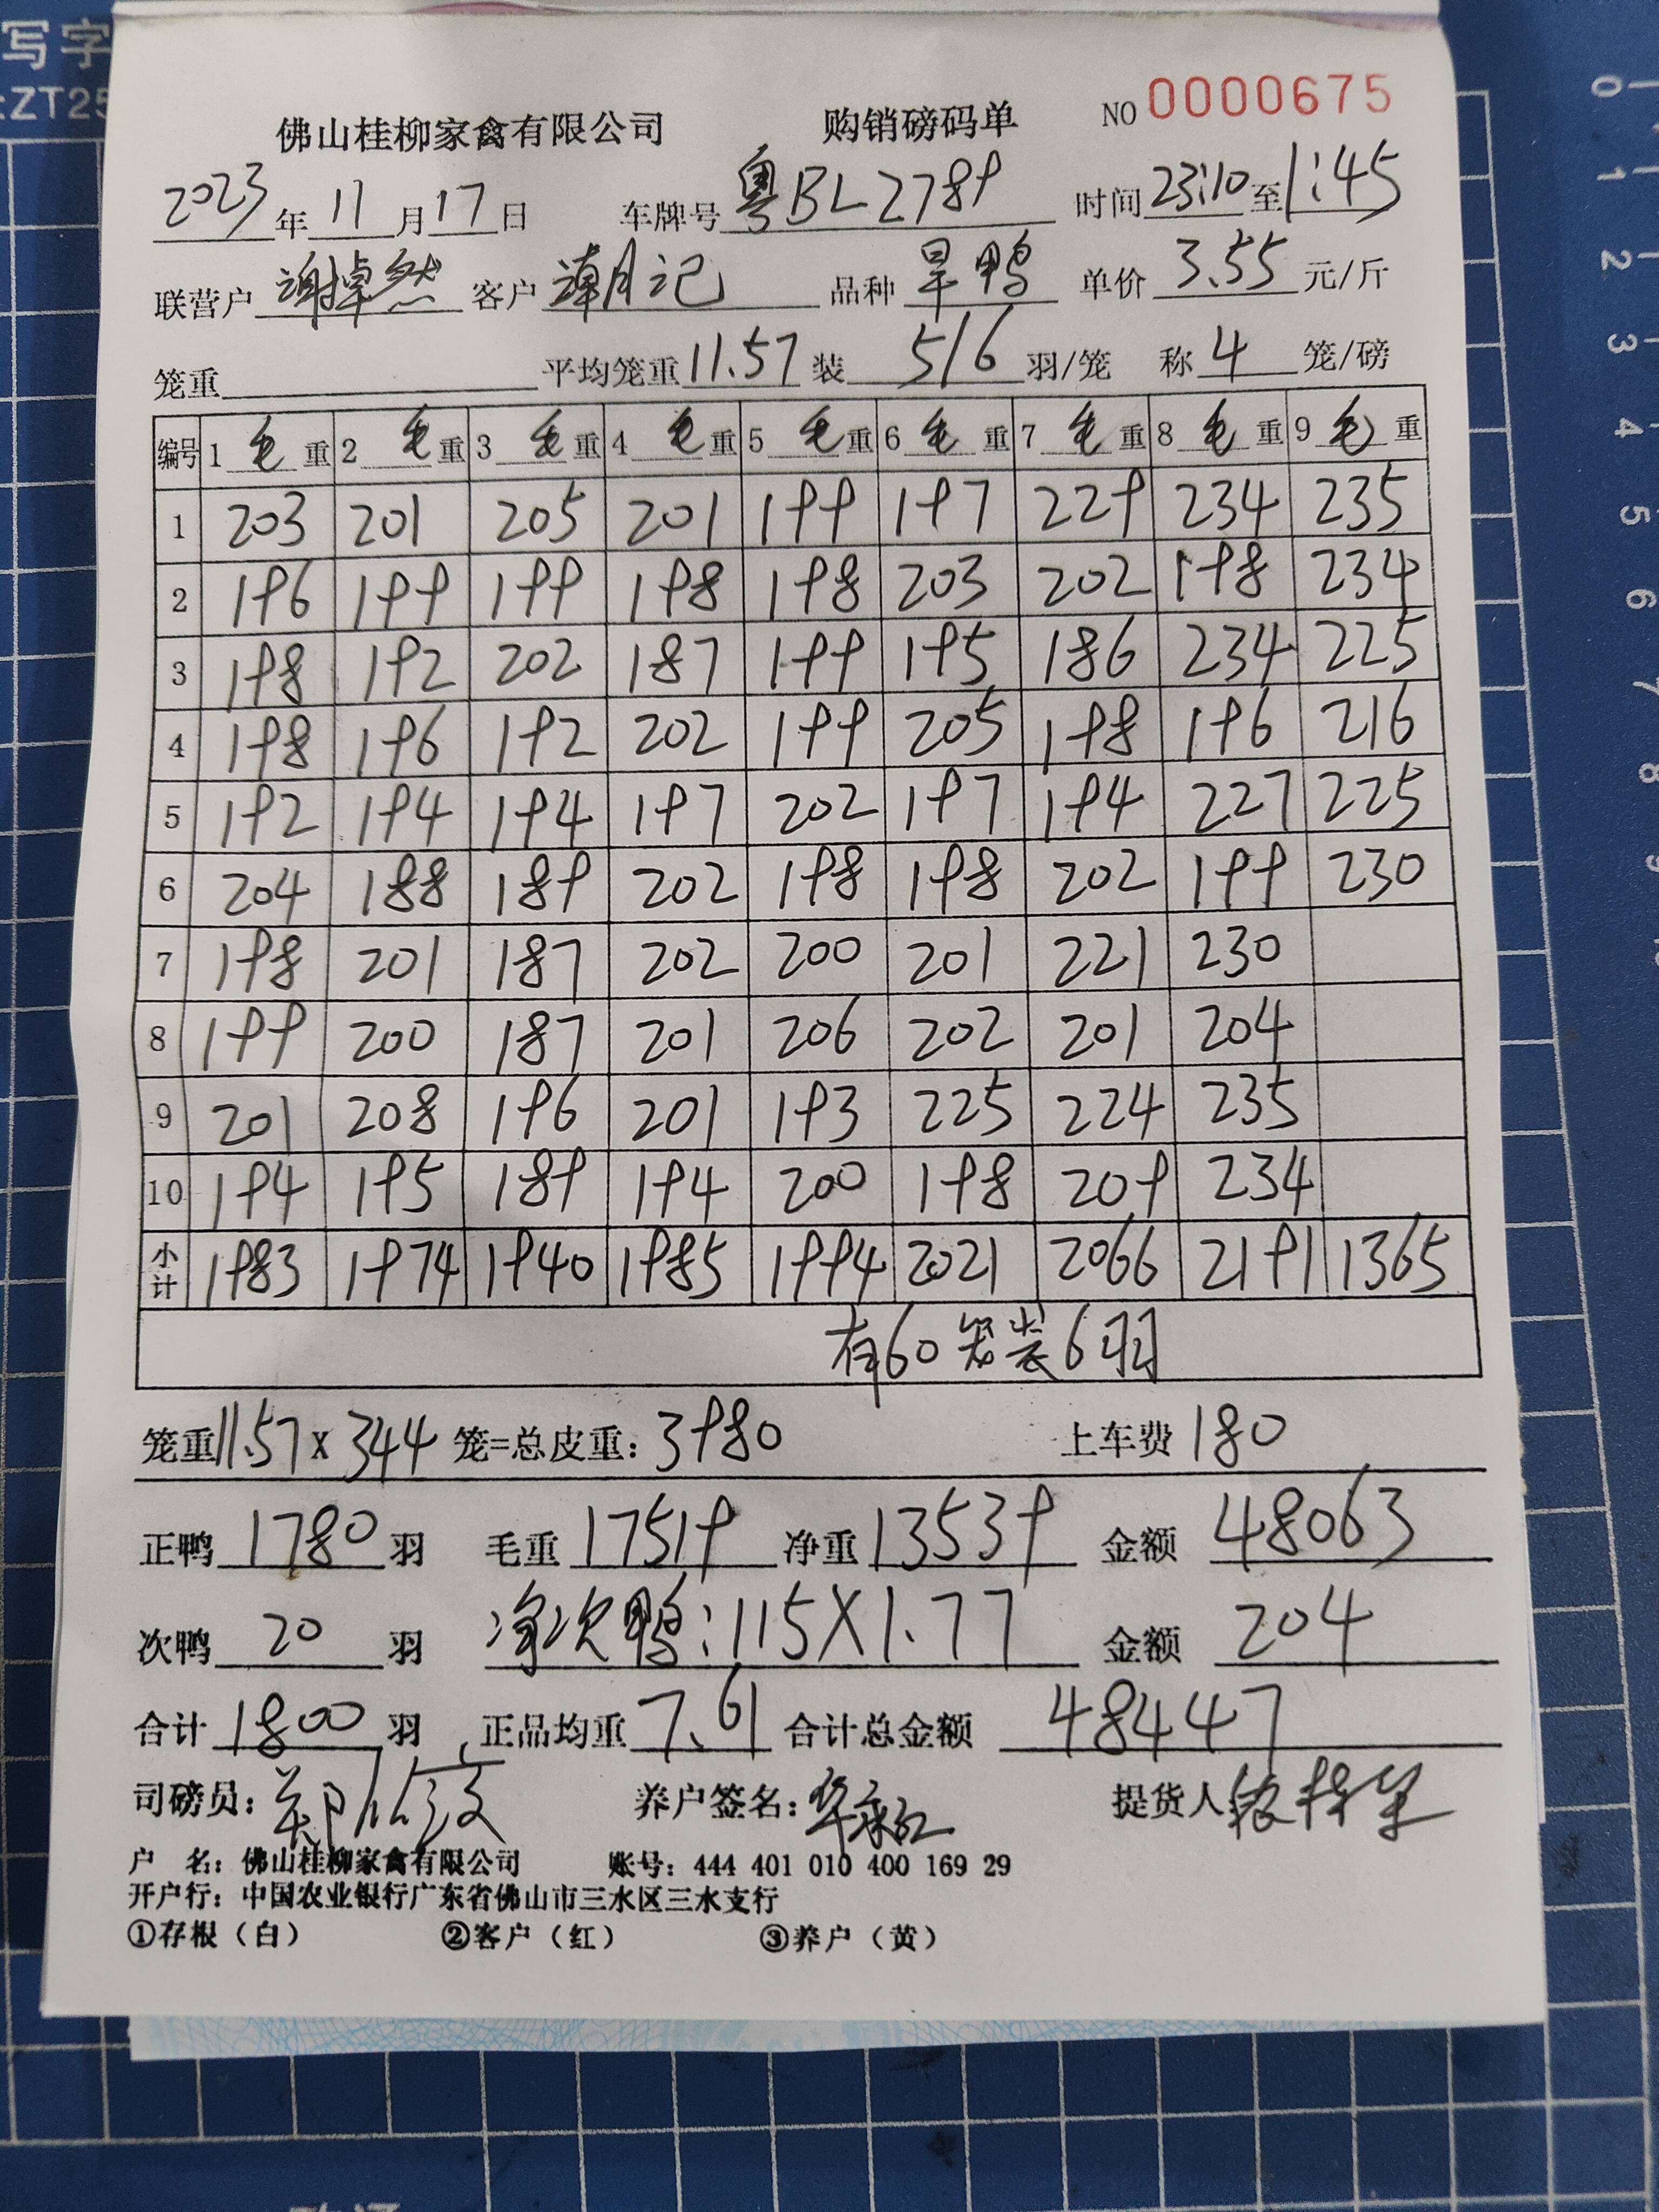 写字
ZT25
佛山桂柳家禽有限公司 购销磅码单 NO 0000675
2023年11月17日 车牌号粤BL2789 时间23:10至1:45
联营户谢掉然 客户潮月记 品种旱鸭 单价3.55元/斤
笼重 平均笼重11.57装5/6羽/笼 称4笼/磅
编号 1毛重 2毛重 3毛重 4毛重 5毛重 6毛重 7毛重 8毛重 9毛重
1 203 201 205 201 199 197 229 234 235
2 196 199 199 198 198 203 202 198 234
3 198 192 202 187 199 195 186 234 225
4 198 196 192 202 199 205 198 196 216
5 192 194 194 197 202 197 194 227 225
6 204 188 189 202 198 198 202 199 230
7 198 201 187 202 200 201 221 230
8 199 200 187 201 206 202 201 204
9 201 208 196 201 193 225 224 235
10 194 195 189 194 200 198 209 234
小计 1983 1974 1940 1985 1994 2021 2066 2191 1365
有60笼装6羽
笼重11.57×344笼=总皮重：3980 上车费180
正鸭1780羽 毛重17519 净重13539 金额48063
次鸭20羽 净次鸭：115X1.77 金额204
合计1800羽 正品均重7.61 合计总金额48447
司磅员： 养户签名： 提货人
户 名：佛山桂柳家禽有限公司 账号：444 401 010 400 169 29
开户行：中国农业银行广东省佛山市三水区三水支行
①存根（白） ②客户（红） ③养户（黄）
0
1
2
3
4
5
6
7
8
9